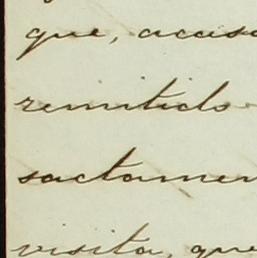 que, acaso
remitido
sactamen
visita, que